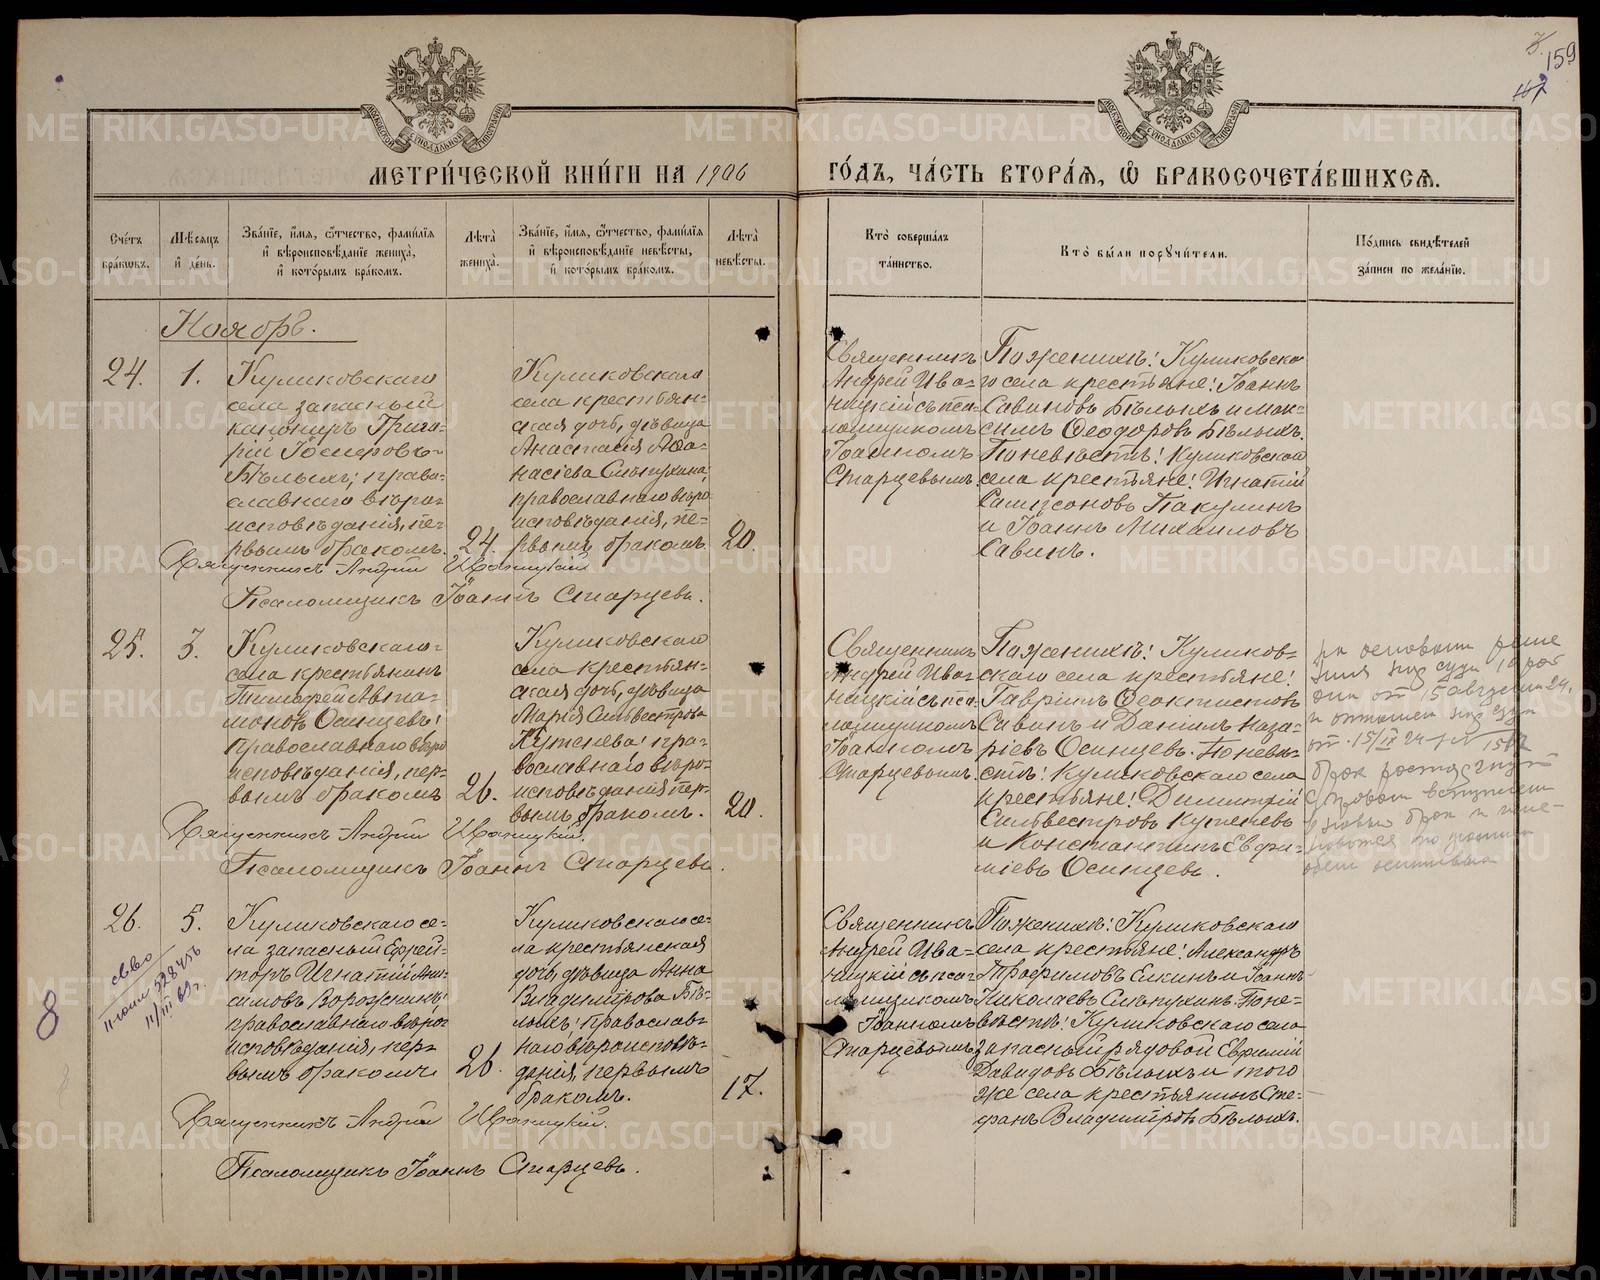 159
МЕТРИ́ЧЕСКОЙ КНИ́ГИ НА 1906 ГО́ДЪ, ЧА́СТЬ ВТОРА́Я, Ѽ БРАКОСОЧЕТА́ВШИХСЯ.
Сче́тъ бра́кѡвъ.
Мѣ́сяцъ и҆ де́нь.
Зва́нїе, и҆́мя, ѻ҆́тчество, фами́лїя и҆ вѣроисповѣ́данїе жениха̀, и҆ кото́рымъ бра́комъ.
Лѣта̀ жениха̀.
Зва́нїе, и҆́мя, ѻ҆́тчество, фами́лїя и҆ вѣроисповѣ́данїе невѣ́сты, и҆ кото́рымъ бра́комъ.
Лѣта̀ невѣ́сты.
Кто̀ соверша́лъ та́инство.
Кто̀ бы́ли порꙋчи́тели.
По́дпись свидѣ́телей за́писи по жела́нїю.
Ноябрь.
24.
1.
Куликовскаго
села запасный
канониръ Григо-
рій
Бѣлыхъ; право-
славнаго вѣро-
исповѣданія, пе-
рвымъ бракомъ.
24.
Куликовскаго
села крестьян-
ская дочь, дѣвица
Анастасія Аѳа-
насіева Слѣпухина,
православнаго вѣро
исповѣданія, пе-
рвымъ бракомъ.
20.
Священникъ
Андрей Ива-
ницкій съ пса-
ломщикомъ
Іоанномъ
Старцевымъ.
По женихѣ: Куликовска
го села крестьяне: Іоаннъ
Савиновъ Бѣлыхъ и Мак-
симъ Ѳеодоровъ Бѣлыхъ.
По невѣстѣ: Куликовскаго
села крестьяне: Игнатій
Сампсоновъ Пакулинъ
и Іоаннъ Михаиловъ
Савинъ.
Священникъ Андрей Иваницкій
Псаломщикъ Іоаннъ Старцевъ.
25.
3.
Куликовскаго
села крестьянинъ
Тимофей Авта-
моновъ Осинцевъ;
православнаго вѣро
исповѣданія, пер-
вымъ бракомъ
26.
Куликовскаго
села крестьян-
ская дочь, дѣвица
Марія Сильвестрова
Кутенева; пра-
вославнаго вѣро-
исповѣданія пер-
вымъ бракомъ.
20.
Священникъ
Андрей Ива-
ницкій съ пса-
ломщикомъ
Іоанномъ
Старцевымъ.
По женихѣ: Куликов-
скаго села крестьяне:
Гавріилъ Ѳеоктистовъ
Савинъ и Даніилъ Наза-
ріевъ Осинцевъ. По невѣ-
стѣ: Куликовскаго села
крестьяне: Димитрій
Сильвестровъ Кутеневъ
и Константинъ Евфи-
міевъ Осинцевъ.
на основании реше
ния нар суда
от 15 августа 24.
брак расторгнут
с правом вступления
в новый брак
Священникъ Андрей Иваницкій.
Псаломщикъ Іоаннъ Старцевъ.
26.
5.
Куликовскаго се-
ла запасный Ефрей-
торъ Игнатій
православнаго вѣро-
исповѣданія, пер-
вымъ бракомъ
26.
Куликовскаго се-
ла крестьянская
дочь, дѣвица Анна
Владимірова Бѣ-
лыхъ; православ-
наго вѣроисповѣ-
данія, первымъ
бракомъ.
17.
Священникъ
Андрей Ива-
ницкій съ пса-
ломщикомъ
Іоанномъ
Старцевымъ
По женихѣ: Куликовскаго
села крестьяне: Александръ
Трофимовъ Елкинъ и Іоаннъ
Николаевъ Слѣпухинъ. По не-
вѣстѣ: Куликовскаго села
запасный рядовой Евфимій
Давидовъ Бѣлыхъ и того
же села крестьянинъ Сте-
фанъ Владиміровъ Бѣлыхъ.
8
Священникъ Андрей Иваницкій.
Псаломщикъ Іоаннъ Старцевъ.
METRIKI.GASO-URAL.RU